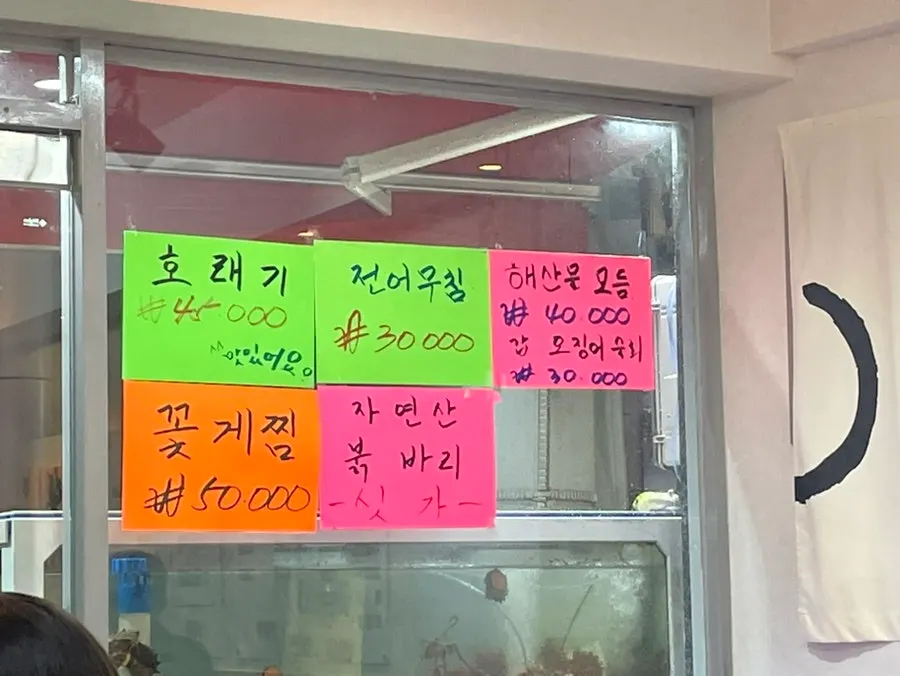 호래기
₩45000
맛있어요
전어무침
₩30000
해산물 모듬
₩ 40.000
갑 오징어 숙회
₩ 30.000
꽃게찜
₩50.000
자연산
붉바리
-싯가-